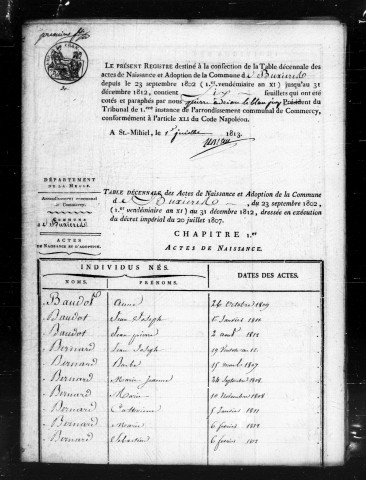 première feuille
LE PRÉSENT REGISTRE destiné à la confection de la Table décennale des
actes de Naissance et Adoption de la Commune de Buxerulles
depuis le 23 septembre 1802 (1.er vendémiaire an XI) jusqu'au 31
décembre 1812, contient feuillets qui ont été
cotés et paraphés par nous Président du
Tribunal de 1.ere instance de l'arrondissement communal de Commercy,
conformément à l'article XLI du Code Napoléon.
A St.-Mihiel, le 1er juillet 1813.
DÉPARTEMENT
DE LA MEUSE.
Arrondissement communal
de Commercy.
COMMUNE
ACTES
DE NAISSANCE ET D'ADOPTION.
TABLE DÉCENNALE des Actes de Naissance et Adoption de la Commune
de , du 23 septembre 1802,
(1.er vendémiaire an XI) au 31 décembre 1812, dressée en exécution
du décret impérial du 20 juillet 1807.
CHAPITRE 1.er
ACTES DE NAISSANCE.
INDIVIDUS NÉS.
NOMS. PRÉNOMS. DATES DES ACTES.
Baudot Anne 26 Octobre 1809
Baudot Jean Joseph Janvier
Baudot Jean 2 avril 1812
Bernard Jean Joseph 19 an 11
Bernard Barbe 15 1807
Bernard Marie Jeanne 24 Septembre 1808
Bernard Marie 10 Novembre 1808
Bernard Catherine 5 Janvier 1811
Bernard Marie 6 février 1812
Bernard Sébastien 6 février 1812